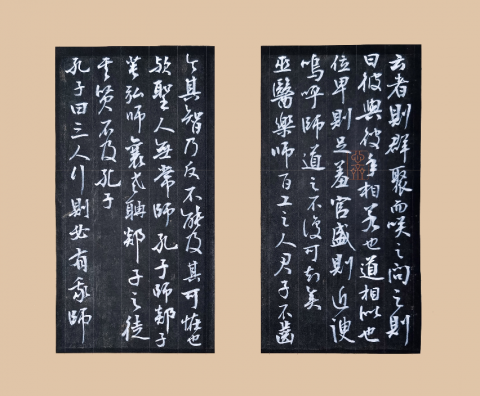 云者則群聚而咲之問之則
曰彼與彼年相若也道相似也
位卑則足羞官盛則近諛
嗚呼師道之不復可知矣
巫醫樂師百工之人君子不齒
今其智乃反不能及其可恠也
歟聖人無常師孔子師郯子
萇弘師襄老聃郯子之徒
其賢不及孔子
孔子曰三人行則必有我師